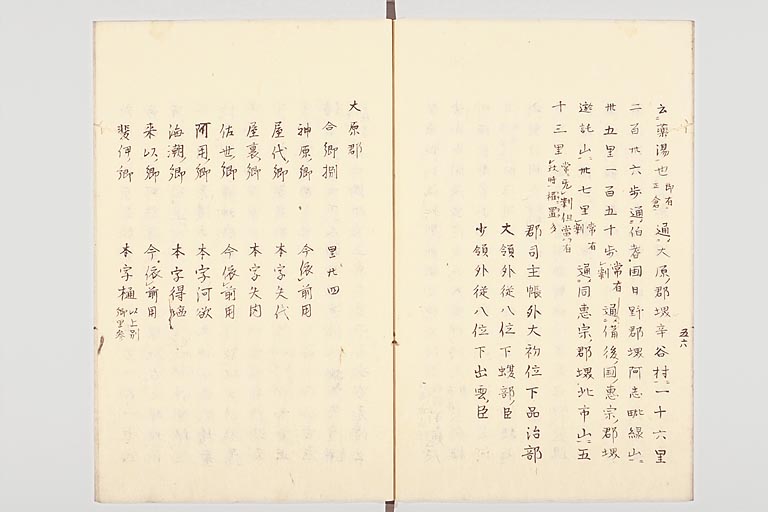 云藥湯也即有正倉通大原郡堺辛谷村一十六里
二百卅六歩通伯耆国日野郡堺阿志毗緑山
卅五里一百五十歩常有剗通備後国惠宗郡堺
遊託山卅七里常有剗通同惠宗郡堺比市山五
十三里常无剗但當有政時權置
郡司主帳外大初位下品治部
大領外從八位下蝮部臣
少領外從八位下出雲臣
五六
大原郡
合郷捌 里廿四
神原郷 今依前用
屋代郷 本字矢代
屋裏郷 本字矢内
佐世郷 今依前用
阿用郷 本字阿欲
海潮郷 本字得塩
来以郷 今依前用
斐伊郷 本字樋以上別郷里参